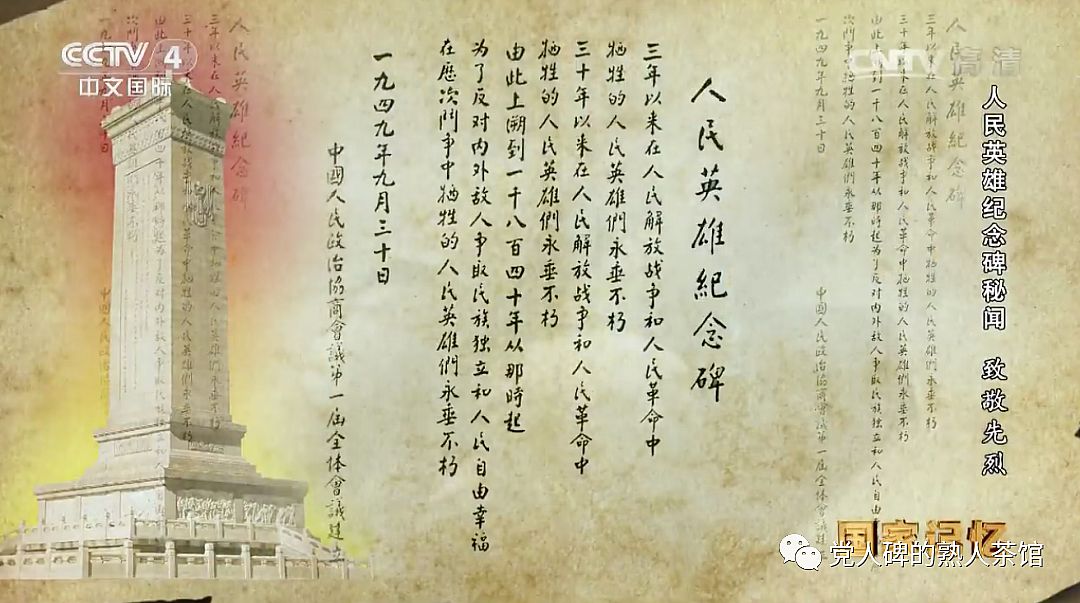 CCTV 4
中文国际
CNTV 高清
人民英雄纪念碑秘闻 致敬先烈
人民英雄紀念碑
三年以来在人民解放战争和人民革命中
牺牲的人民英雄們永垂不朽
三十年以来在人民解放战争和人民革命中
牺牲的人民英雄們永垂不朽
由此上溯到一千八百四十年从那時起
为了反对内外敌人争取民族独立和人民自由幸福
在歷次鬥争中牺牲的人民英雄們永垂不朽
一九四九年九月三十日
中國人民政治協商會議第一届全体會議建立
国家记忆
党人碑的熟人茶馆